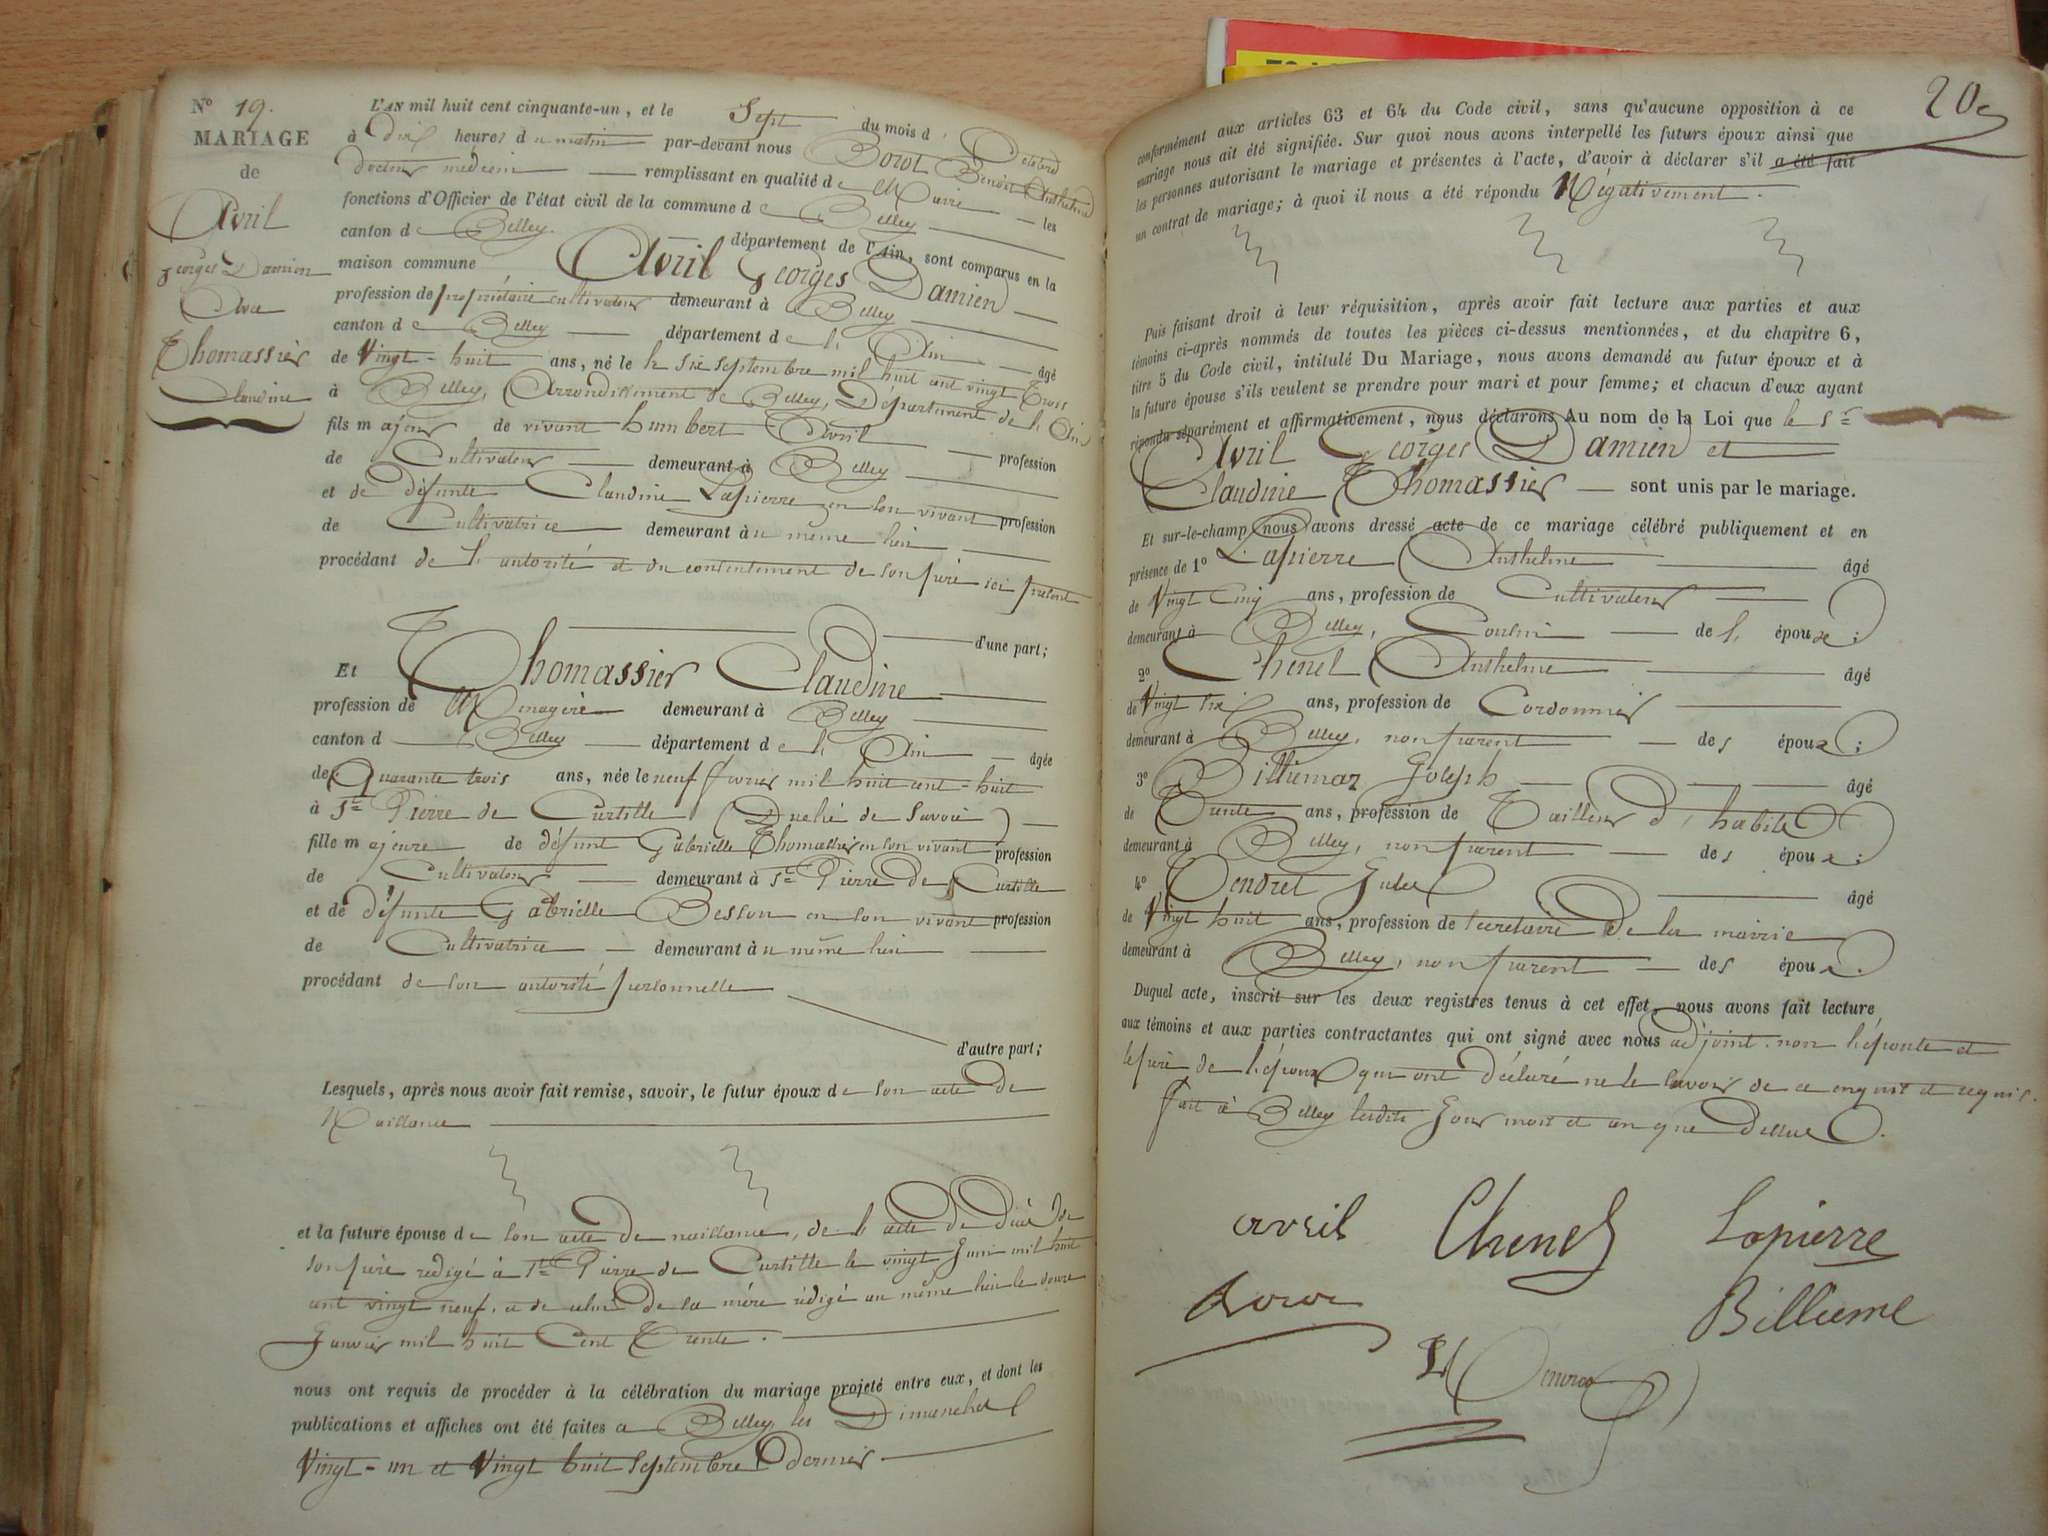 N° 19.
MARIAGE
de
Avril
georges Damien
Avec
Thomassier
Claudine
L'AN mil huit cent cinquante-un, et le Sept du mois d'Octobre
à Dix heures du matin par-devant nous Borot Benoit Anthelme
docteur medecin remplissant en qualité de Maire les
fonctions d'Officier de l'état civil de la commune de Belley
canton de Belley. département de l'Ain, sont comparus en la
maison commune Avril Georges Damien
profession de propriétaire cultivateur demeurant à Belley
canton de Belley département de l'Ain âgé
de Vingt-huit ans, né le le six septembre mil huit cent vingt Trois
à Belley, Arrondissement de Belley, Département de l'Ain
fils majeur de vivant humbert Avril profession
de Cultivateur demeurant à Belley
et de défunte Claudine Lapierre en son vivant profession
de Cultivatrice demeurant au même lieu
procédant de l'autorité et du consentement de son père ici présent
d'une part;
Et Thomassier Claudine
profession de Menagère demeurant à Belley
canton d Belley département de l'Ain âgée
de Quarante trois ans, née le neuf fevrier mil huit cent-huit
à St Pierre de Curtille (Duché de Savoie)
fille majeure de défunt Gabrielle Thomassier en son vivant profession
de Cultivateur demeurant à St Pierre De Curtille
et de défunte Gabrielle Besson en son vivant profession
de Cultivatrice demeurant au même lieu
procédant de son autorité personnelle
d'autre part;
Lesquels, après nous avoir fait remise, savoir, le futur époux de son acte De
Naissance
et la future épouse de son acte de naissance, de l'acte de décès de
son père redigé à St Pierre de Curtille le vingt Juin mil huit
cent vingt neuf, a de celui De sa mère rédigé au même lieu le douze
Janvier mil huit Cent Trente.
nous ont requis de procéder à la célébration du mariage projeté entre eux, et dont les
publications et affiches ont été faites a Belley les Dimanches
Vingt-un et Vingt huit septembre Dernier
20
conformément aux articles 63 et 64 du Code civil, sans qu'aucune opposition à ce
mariage nous ait été signifiée. Sur quoi nous avons interpellé les futurs époux ainsi que
les personnes autorisant le mariage et présentes à l'acte, d'avoir à déclarer s'il a été fait
un contrat de mariage; à quoi il nous a été répondu Négativement.
Puis faisant droit à leur réquisition, après avoir fait lecture aux parties et aux
témoins ci-après nommés de toutes les pièces ci-dessus mentionnées, et du chapitre 6,
titre 5 du Code civil, intitulé Du Mariage, nous avons demandé au futur époux et à
la future épouse s'ils veulent se prendre pour mari et pour femme; et chacun d'eux ayant
répondu séparément et affirmativement, nous déclarons Au nom de la Loi que le Sr
Avril georges Damien et
Claudine Thomassier sont unis par le mariage.
Et sur-le-champ nous avons dressé acte de ce mariage célébré publiquement et en
présence de 1° Lapierre Anthelme âgé
de Vingt Cinq ans, profession de Cultivateur
demeurant à Belley, Cousin de l'épouse;
2° Chenel Anthelme âgé
de Vingt six ans, profession de Cordonnier
demeurant à Belley, non parent des époux;
3° Billiemaz Joseph âgé
de Trente ans, profession de Tailleur d'habits
demeurant à Belley, non parent des époux;
4° Tendret Jules âgé
de Vingt huit ans, profession de secretaire De la mairie
demeurant à Belley, non parent des époux.
Duquel acte, inscrit sur les deux registres tenus à cet effet, nous avons fait lecture
aux témoins et aux parties contractantes qui ont signé avec nous adjoint. non l'épouse et
le père de l'époux qui ont Déclaré ne le savoir de ce enquis et requis.
fait à Belley lesdits Jour mois et an que Dessus.
avril Chenel Lapierre
Billieme